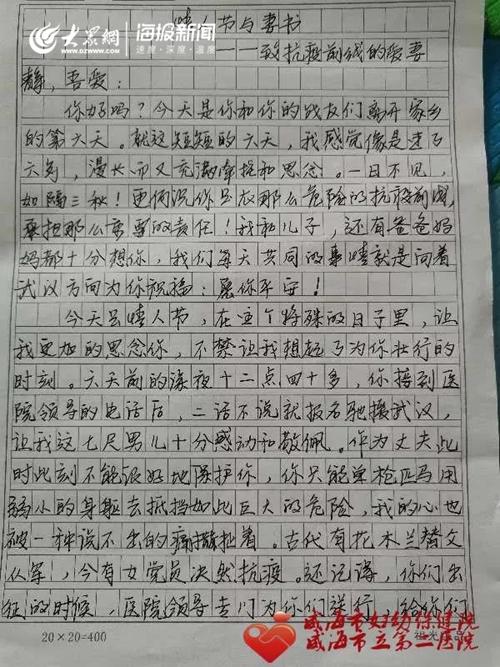 大众网 海报新闻
速度·深度·温度
情人节与妻书
——致抗疫前线的爱妻
静,吾爱:
你好吗?今天是你和你的战友们离开家乡
的第六天。就这短短的六天,我感觉像是过了
六年,漫长而又充满牵挂和思念。一日不见,
如隔三秋!更何况你是在那么危险的抗疫前线,
承担那么重要的责任!我和儿子,还有爸爸妈
妈都十分想你,我们每天共同的事情就是向着
武汉方向为你祝福:愿你平安!
今天是情人节,在这个特殊的日子里,让
我更加的思念你,不禁让我想起了为你壮行的
时刻。六天前的深夜十二点四十多,你接到医
院领导的电话后,二话不说就报名驰援武汉,
让我这七尺男儿十分感动和敬佩。作为丈夫此
时此刻不能很好地保护你,你只能单枪匹马用
弱小的身躯去抵挡如此巨大的危险,我的心也
被一种说不出的痛撕扯着。古代有花木兰替父
从军,今有女党员决然抗疫。还记得,你们出
征的时候,医院领导专门为你们送行,给你们
20×20=400
威海市妇幼保健院
威海市立第二医院